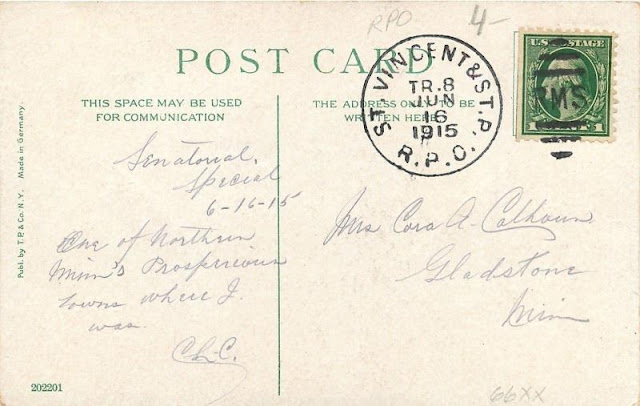 RPO 4-
POST CARD
THIS SPACE MAY BE USED
FOR COMMUNICATION
THE ADDRESS ONLY TO BE
WRITTEN HERE
ST. VINCENT & ST. P.
TR. 8
JUN
16
1915
R.P.O.
U.S. POSTAGE
RMS
1 1
Senatorial
Special
6-16-15
One of Northern
Minn's Prosperious
towns where I
was.
C.A.C.
Mrs Cora A. Calhoun
Gladstone
Minn
Publ. by T.P.& Co. N.Y. Made in Germany
202201
66XX